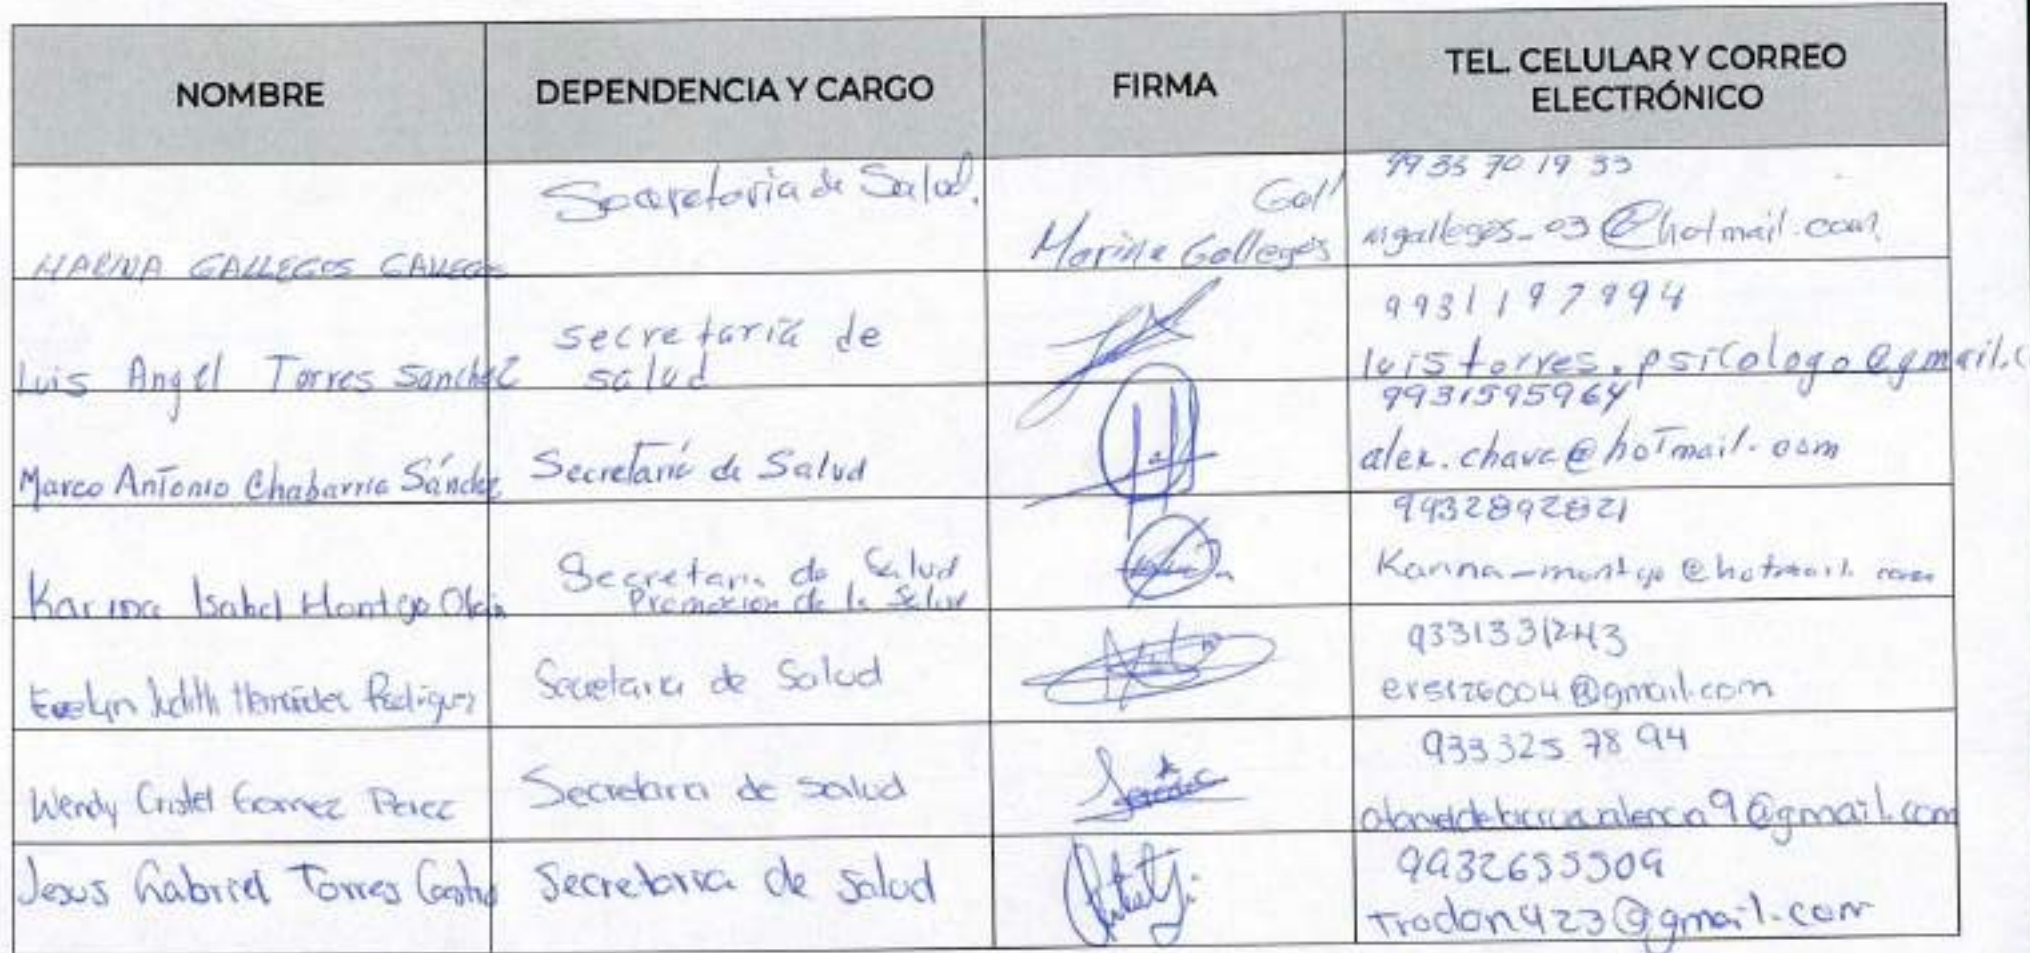 NOMBRE
DEPENDENCIA Y CARGO
FIRMA
TEL. CELULAR Y CORREO
ELECTRÓNICO
MARINA GALLEGOS GALLEGOS
Secretaria de Salud.
Gall
Marina Gallegos
9933 70 19 33
mgallegos_03@hotmail.com
Luis Angel Torres Sanchez
secretaria de
salud
9931197994
luistorres.psicologo@gmail.c
Marco Antonio Chabarria Sánchez
Secretaría de Salud
9931595964
alex.chava@hotmail.com
Karina Isabel Montejo Olan
Secretaria de Salud
Promocion de la Salud
9932892821
Karina-montejo@hotmail.com
Evelyn Judith Hernández Rodriguez
Secretaria de Salud
9331331243
@gmail.com
Wendy Cristel Gomez Perez
Secretaria de salud
933325 78 94
9@gmail.com
Jesus Gabriel Torres Castro
Secretaria de Salud
Trodon423@gmail.com